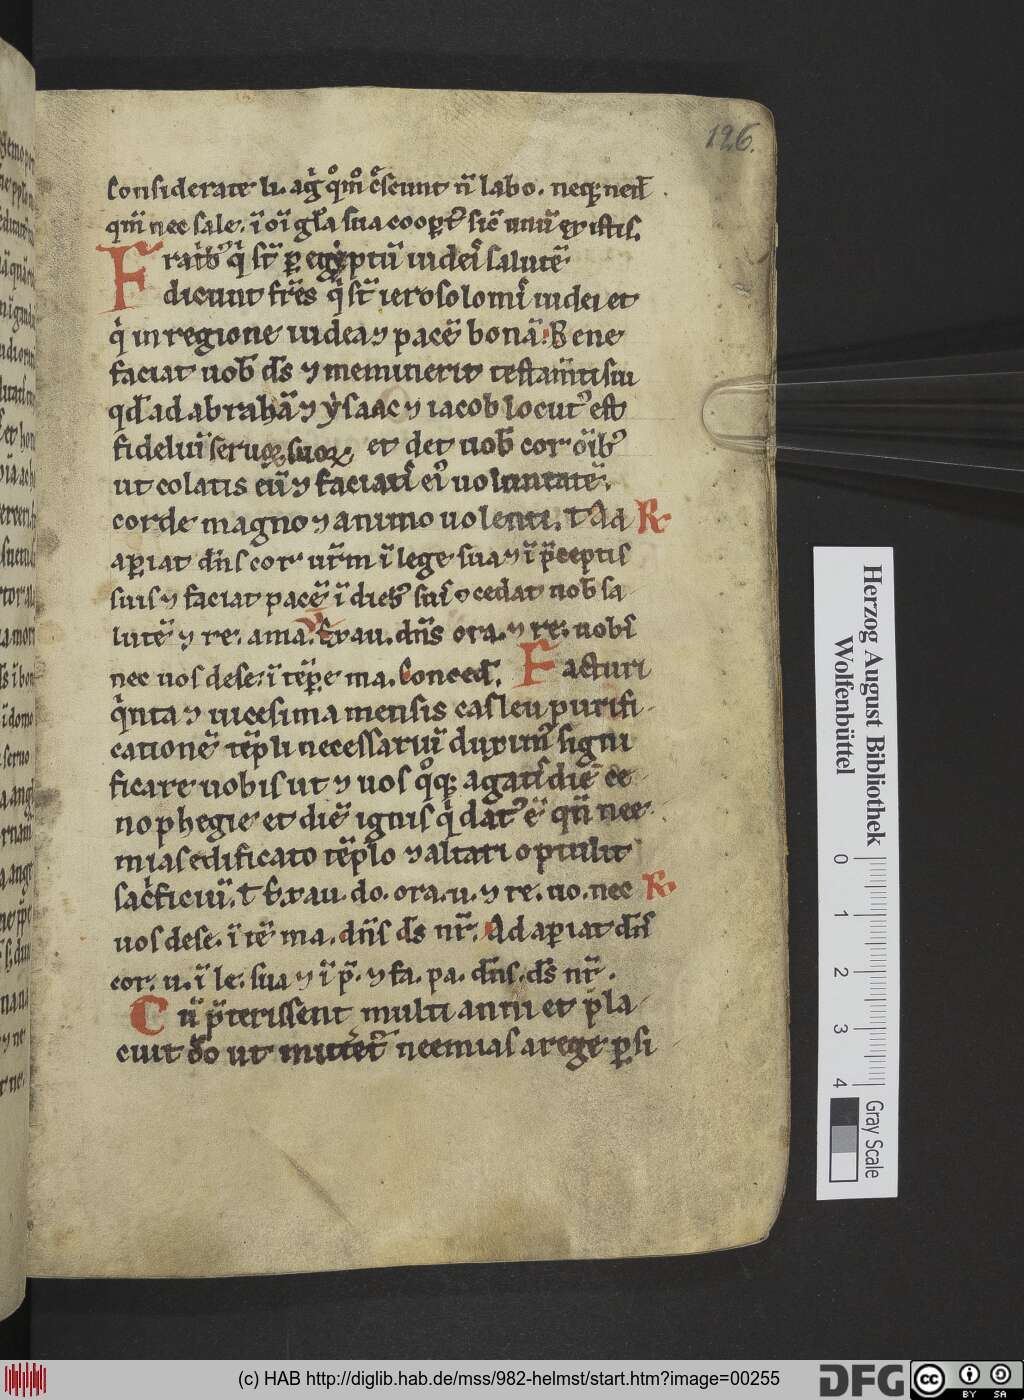 126.
Considerate li. ag̃ qm̊o c̃scunt ñ labo. neq; neñt
qm̃ nec sale. ĩ oĩ gl̃a sua coopt᷑ sic̃ unũ ex istis.
Fratib᷒ q̇ st̃ p egyptũ iudeĩ salutẽ
dicunt fr̃es q̇ st̃ ierosolomĩ iudei et
q̇ in regione iudea ⁊ pacẽ bonã. Bene
faciat uob̃ ds̃ ⁊ meminerit testam̃ti sui
qd̃ ad abrahã ⁊ ysaac ⁊ iacob locut᷒ est
fideliũ seruoꝝ suoꝝ et det uob̃ cor oĩb᷒
ut colatis eũ ⁊ faciatĩ ei᷒ uoluntatẽ.
corde magno ⁊ animo uolenti. t Ad R
apiat dñs cor ur̃m ĩ lege sua ⁊ ĩ p̃ceptis
suis ⁊ faciat pacẽ ĩ dieb᷒ suĩ ꝯcedat nob̃ sa
lutẽ ⁊ re. a ma. Exau. dñs ora. ⁊ re. uobĩ
nec uos dese. ĩ tẽpe ma. Conced̃. Facturi
q̇nta ⁊ uicesima mensis casleu purifi
cationẽ tẽpli necessariũ duxim᷒ signi
ficare uobis ut ⁊ uos q̊q; agatĩ diẽ ce
nophegie et diẽ ignis q̇ dat᷒ ẽ qñ nee
mias edificato tẽplo ⁊ altari optulit
sac̃ficiũ. t Exau. do. ora. u. ⁊ re. uo. nec R
uos dese. ĩ tẽ ma. dñs ds̃ nr̃. Adapiat dñs
cor. u. ĩ le. sua ⁊ ĩ p̃. ⁊ fa. pa. dñs. ds̃ nr̃.
Cũ p̃terissent multi anni et pla
cuit do ut mitet᷑ neemias a rege psi
Herzog August Bibliothek
Wolfenbüttel
0 1 2 3 4
Gray Scale
(c) HAB http://diglib.hab.de/mss/982-helmst/start.htm?image=00255
DFG
cc BY SA